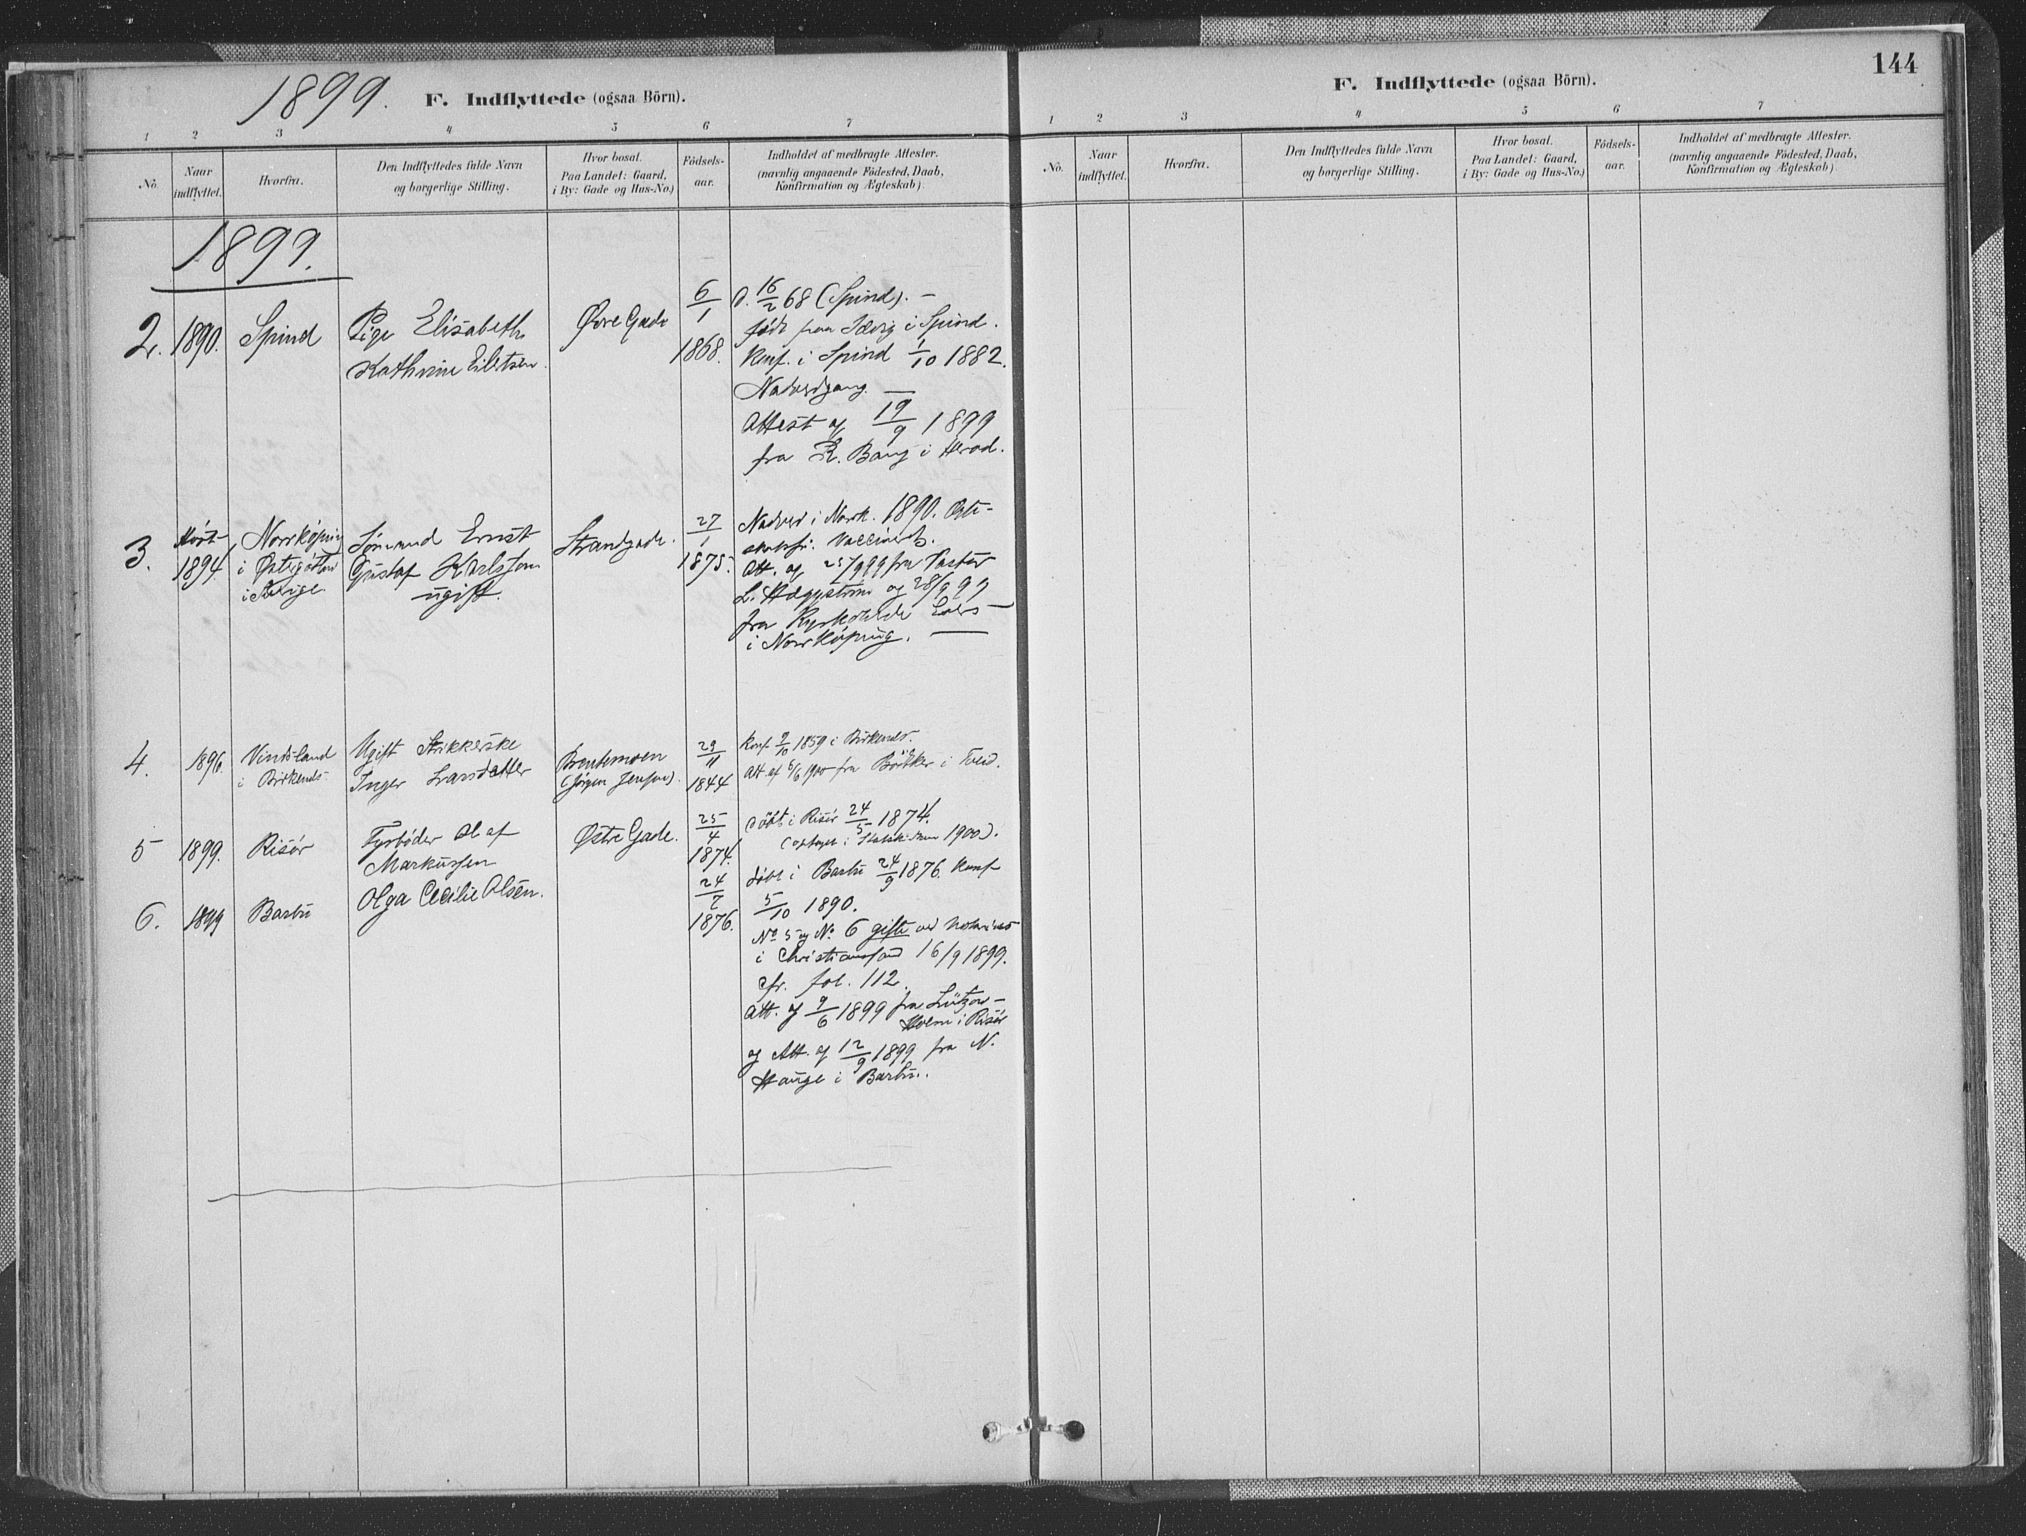 1899.
F. Indflyttede (ogsaa Börn).
1 2 3 4 5 6 7
No.
Naar
indflyttet.
Hvorfra.
Den Indflyttedes fulde Navn
og borgerlige Stilling.
Hvor bosat.
Paa Landet: Gaard,
i By: Gade og Hus-No.)
Födsels-
aar.
Indholdet af medbragte Attester.
(navnlig angaaende Födested, Daab,
Konfirmation og Ægteskab)
1899.
2. 1890. Spind
Pige Elisabeth
Kathrine Eilertsen.
Øvre Gade
6/1
1868.
d. 16/2 68 (Spind). —
født paa i Spind.
Konf. i Spind 1/10 1882.
Nadvergang —
Attest af 19/9 1899
fra K. Bang i Herad.
3.
Høst
1894
Norrköping
i Østergötland
i Sverige
Sømand Ernst
Gustaf Karlsson
ugift.
Strandgade.
27/1
1875.
Nadver i Mark. 1890.
Att. af 25/9 99 fra Pastor
L. Hæggström og 28/9 99
fra
i Norrköping.
4. 1896.
Vindsland
i Birkenes
Ugift Strikkerske
Inger Larsdatter
Brentemoen
(Jørgen Jensen).
29/11
1844
Konf. 9/10 1859 i Birkenes.
Att. af 5/6 1900 fra Bödtker i Tveid.
5 1899. Risør
Fyrbøder Olaf
Markussen
Østre Gade.
25/4
1874.
døbt i Risør 24/5 1874.
(optaget i 1900).
6. 1899 Barbu
Olga Cecilie Olsen.
24/7
1876.
døbt i Barbu 24/9 1876. Konf
5/10 1890.
No 5 og No 6 gifte ved Notarius
i Christianssand 16/9 1899.
cfr. fol. 112.
Att. af 9/6 1899 fra Lützow-
Holm i Risør
og Att. af 12/9 1899 fra N.
Hauge i Barbu.
144
F. Indflyttede (ogsaa Börn).
1 2 3 4 5 6 7
No.
Naar
indflyttet.
Hvorfra.
Den Indflyttedes fulde Navn
og borgerlige Stilling.
Hvor bosat.
Paa Landet: Gaard,
i By: Gade og Hus-No.)
Födsels-
aar.
Indholdet af medbragte Attester.
(navnlig angaaende Födested, Daab,
Konfirmation og Ægteskab)